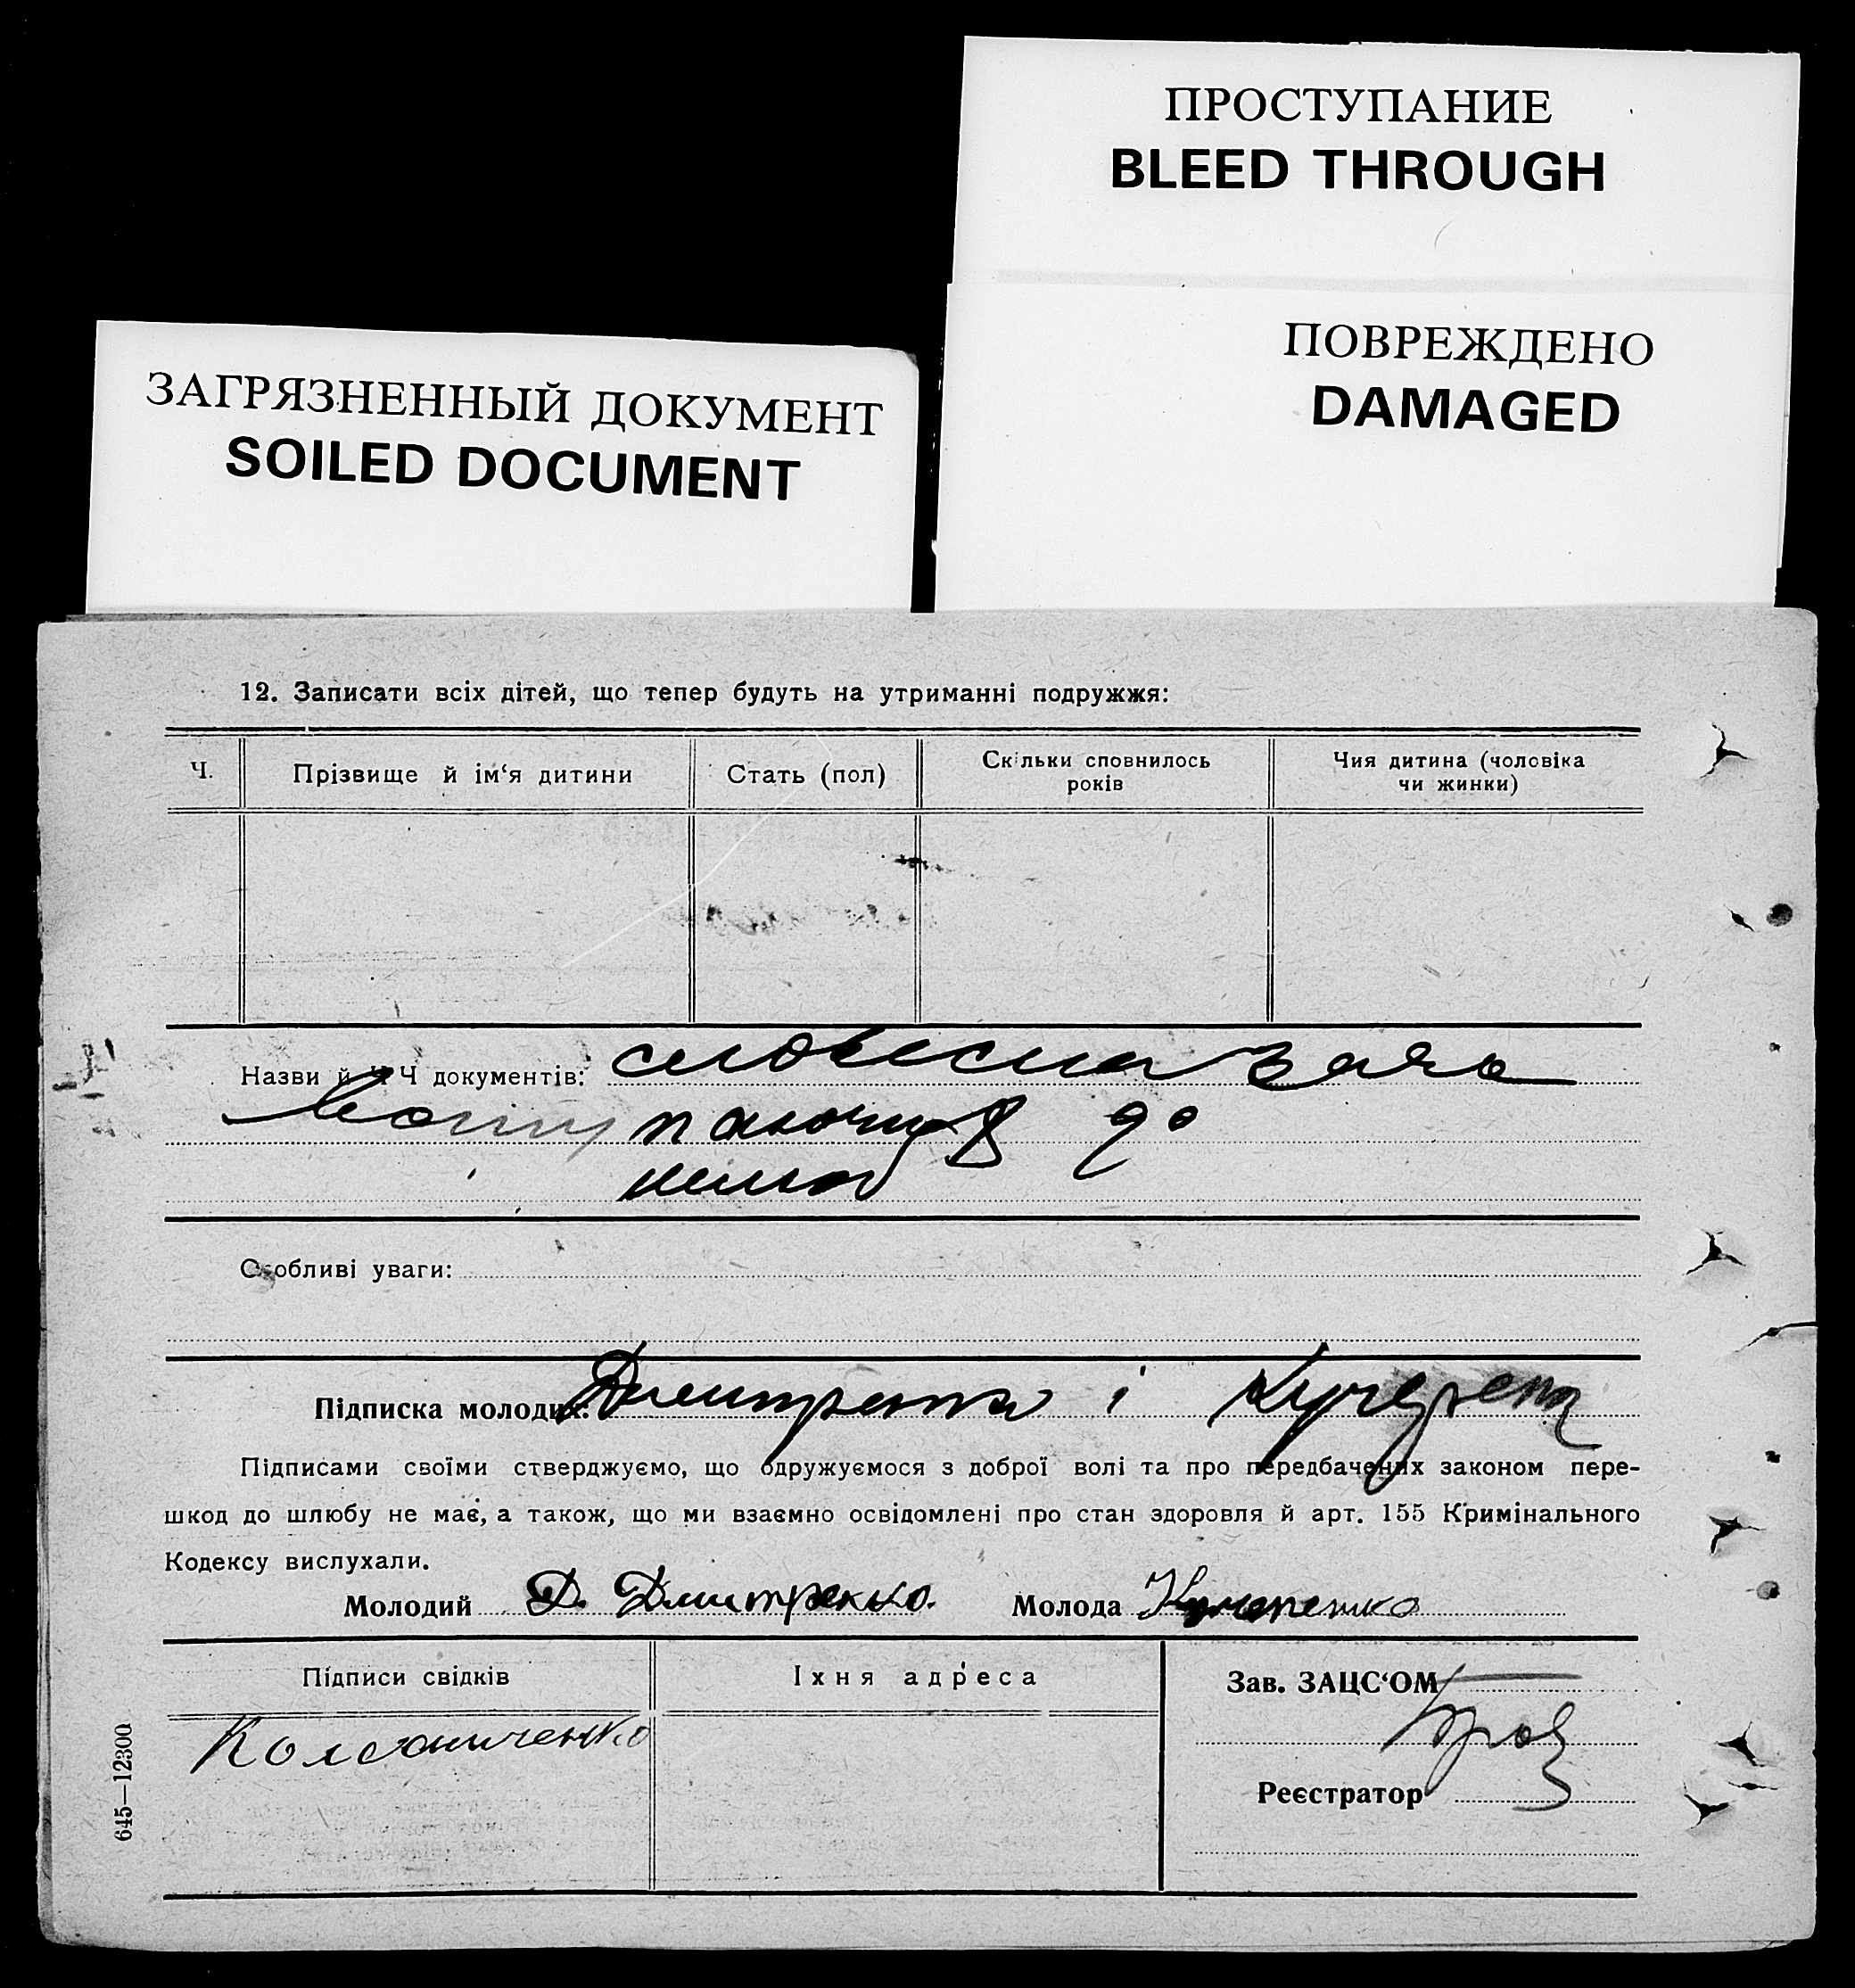 ПРОСТУПАНИЕ
BLEED THROUGH
ПОВРЕЖДЕНО
DAMAGED
ЗАГРЯЗНЕННЫЙ ДОКУМЕНТ
SOILED DOCUMENT
12. Записати всіх дітей, що тепер будуть на утриманні подружжя:
Ч.
Прізвище й ім‘я дитини
Стать (пол)
Скільки сповнилось
років
Чия дитина (чоловіка
чи жинки)
Назви й Ч Ч документів: словесна зая
до
Особливі уваги:
Підписка молодих: і
Підписами своїми стверджуємо, що одружуємося з доброї волі та про передбачених законом пере-
шкод до шлюбу не має, а також, що ми взаємно освідомлені про стан здоровля й арт. 155 Кримінального
Кодексу вислухали.
Молодий Д. Дмитренко. Молода Кучеренко
Підписи свідків
Іхня адреса
Зав. ЗАЦС‘ОМ
Реєстратор
645—12300